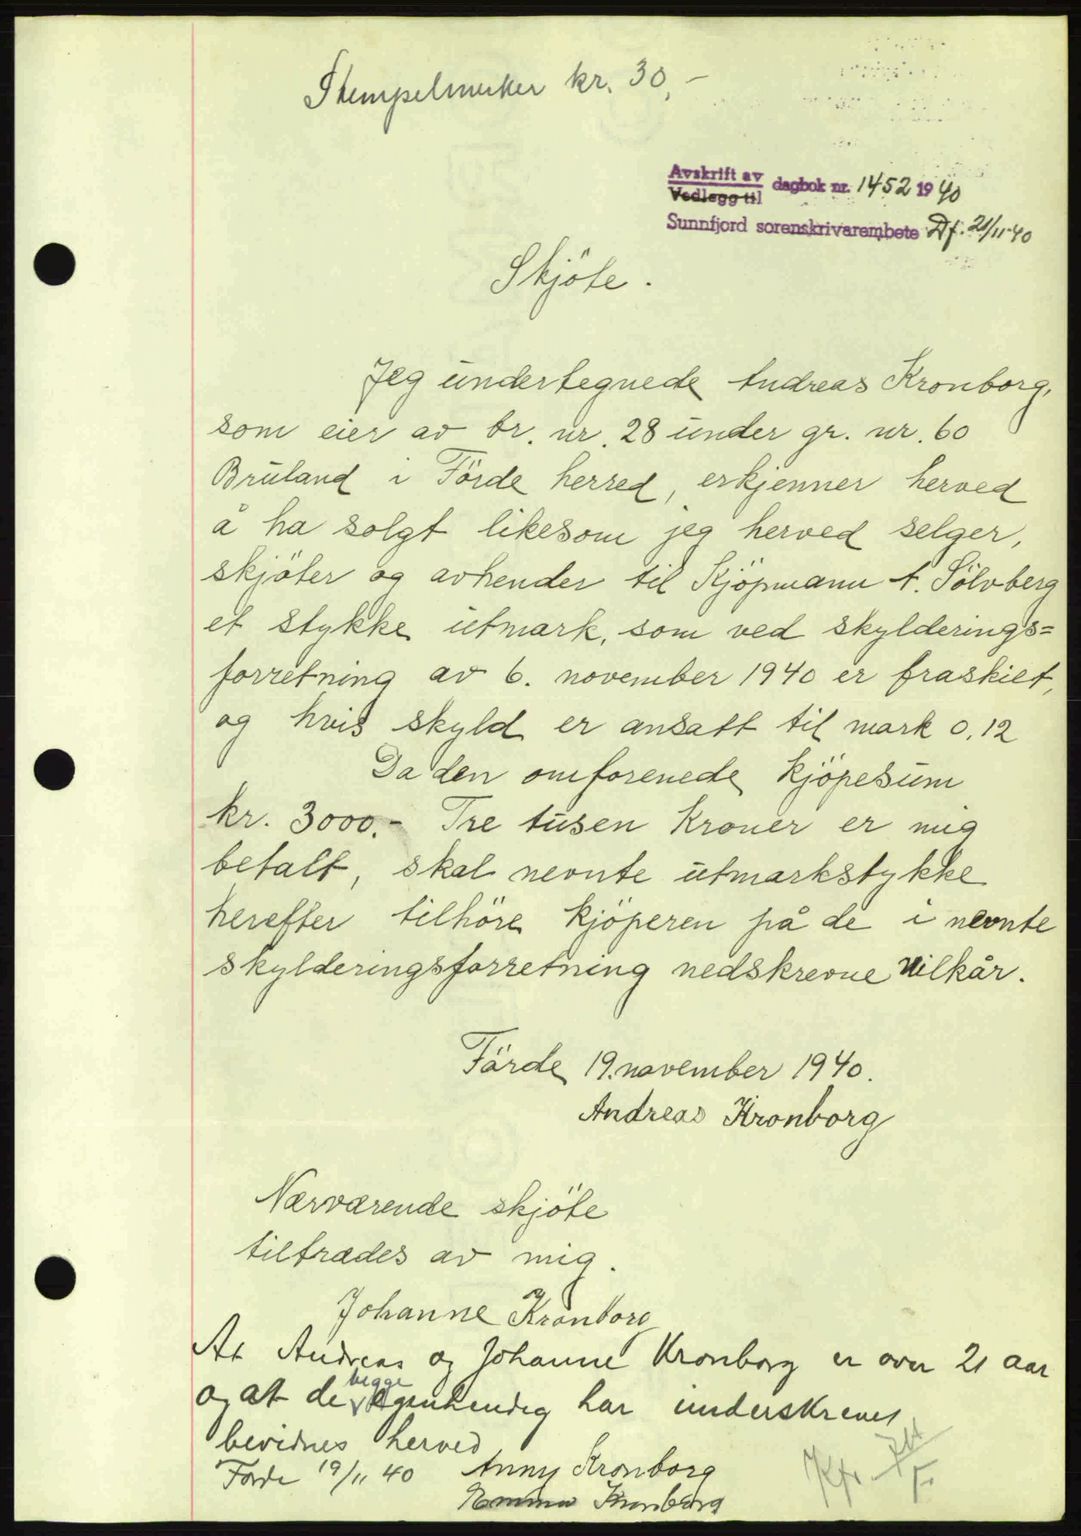 Stempelmerker kr. 30,-
Avskrift av
Vedlegg til
dagbok nr. 1452 1940
Sunnfjord sorenskrivarembete Df. 21/11-40
Skjöte.
Jeg undertegnede Andreas Kronborg,
som eier av br. nr. 28 under gr. nr. 60
Bruland i Förde herred, erkjenner herved
å ha solgt likesom jeg herved selger,
skjöter og avhender til Kjöpmann A. Sölvberg
et stykke utmark, som ved skylderings=
forretning av 6. november 1940 er fraskilt,
og hvis skyld er ansatt til mark 0,12
Da den omforenede kjöpesum
kr. 3000.- Tre tusen Kroner er mig
betalt, skal nevnte utmarkstykke
herefter tilhöre kjöperen på de i nevnte
skylderingsforretning nedskrevne vilkår.
Förde 19. november 1940.
Andreas Kronborg
Nærværende skjöte
tiltrædes av mig.
Johanne Kronborg
At Andreas og Johanne Kronborg er over 21 aar
og at de begge egenhendig har underskrevet
bevidnes herved
Förde 19/11 40 Anny Kronborg
Emma Kronborg